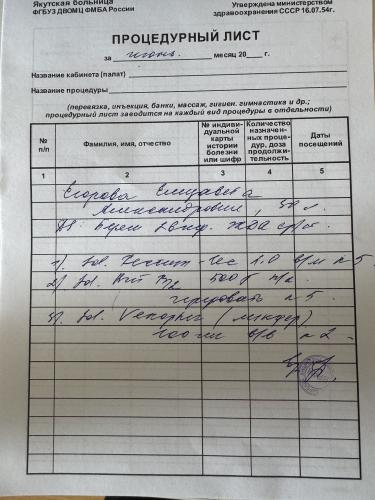 Якутская больница
ФГБУЗ ДВОМЦ ФМБА России
Утверждена министерством
здравоохранения СССР 16.07.54г.
ПРОЦЕДУРНЫЙ ЛИСТ
за июнь месяц 20 г.
Название кабинета (палат)
Название процедуры
(перевязка, инъекция, банки, массаж, гигиен. гимнастика и др.;
процедурный лист заводится на каждый вид процедуры в отдельности)
№ п/п
Фамилия, имя, отчество
№ индивидуальной карты истории болезни или шифр
Количество назначенных процедур, доза продолжительность
Даты посещений
1 2 3 4 5
Егорова Елизавета
Александровна
Ds: Берем ЖДА ср/ст.
1) Sol. 1.0 в/м n 5.
2) Sol. Вит B12 500 п/к
чередовать n 5.
3) Sol. Венофер
100 мг в/в n 2